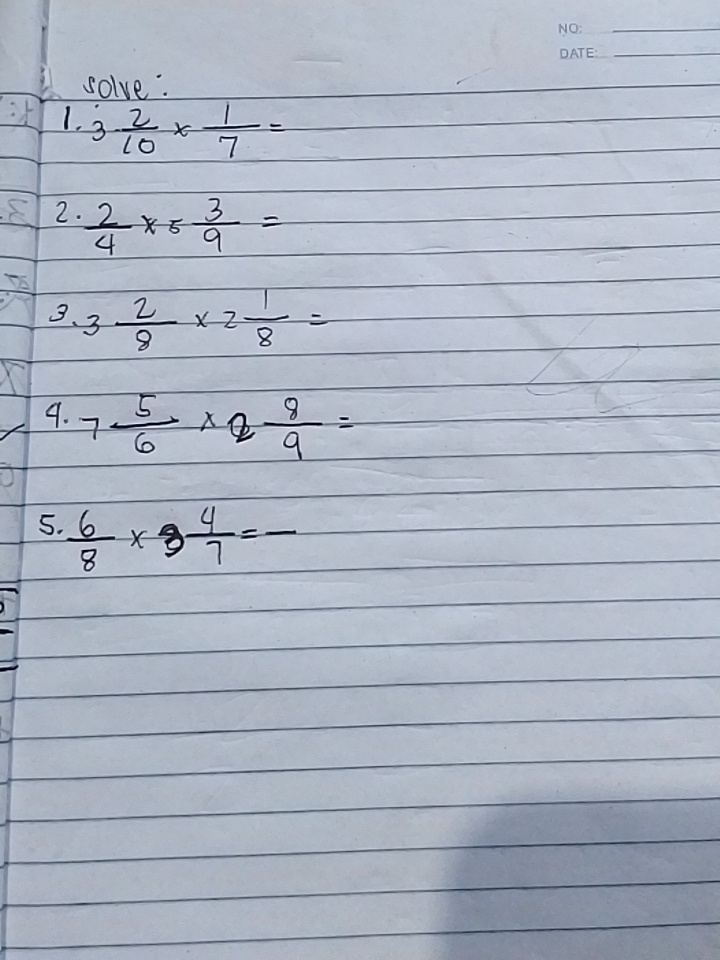 NO:
DATE:
solve:
1. 3 2/10 x 1/7 =
2. 2/4 x 5 3/9 =
3. 3 2/8 x 2 1/8 =
4. 7 5/6 x 2 8/9 =
5. 6/8 x 3 4/7 = —